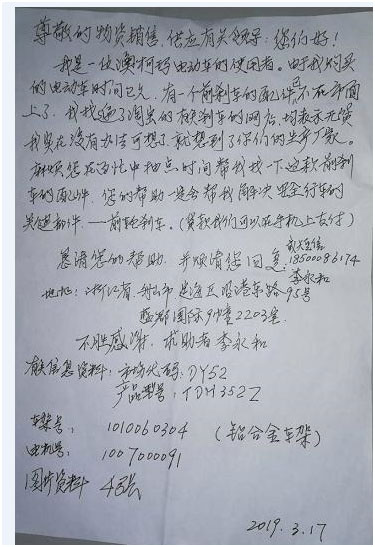 尊敬的物资销售、供应有关领导：您们好！
我是一位澳柯玛电动车的使用者。由于我购买
的电动车时间已久，有一个前刹车的配件已不在市面
上了，我找遍了淘宝的有刹车的网店，均表示无货
我实在没有办法可想了，就想到了你们的生产厂家。
麻烦您在百忙中抽点时间帮我找一下这款前刹
车的配件，您的帮助一定会帮我解决安全行车的
关键部件——前轮刹车。（货款我们可以在手机上支付）
恳请您的帮助，并烦请您回复，
18500086174
李永和
地址：浙江省舟山市定海区 港东路95号
国际9幢2203室
不胜感谢，求助者李永和
有关信息资料：市场代码：DY52
产品型号：TDH352Z
车架号：1010060304（铝合金车架）
电机号：1007000091
图片资料 4张
2019.3.17